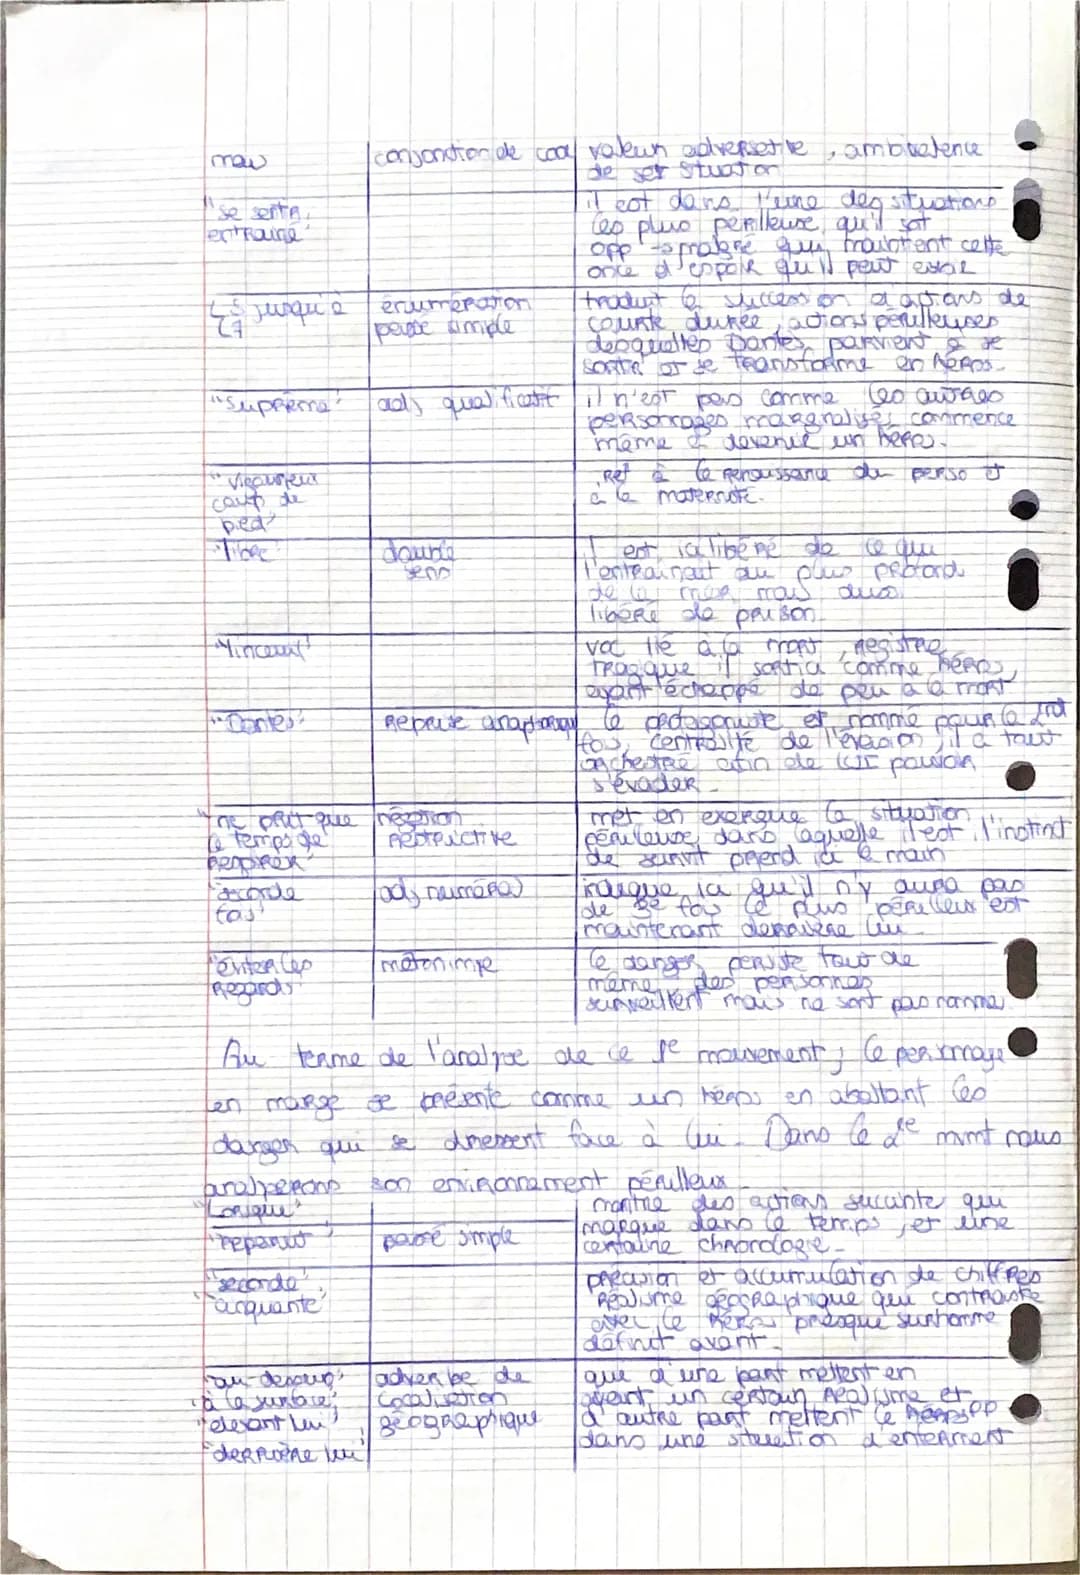 mais
conjonction de coo
valeur adversative, ambivalence
de ses situation
"se sentit
entrainé"
il est dans l'une des situations
les plus périlleuse, qu'il soit
opp → malgré qui maintient cette
once d'espoir qu'il peut avoir
L5 jusqu'à
L7
énumération
passé simple
traduit la succession d'actions de
courte durée, actions périlleuses
desquelles Dantès parvient à se
sortir et se transforme en héros.
"suprême"
adj qualificatif
il n'est pas comme les autres
personnages marginalisés, commence
même à devenir un héros.
"vigoureux
coup de
pied"
Ref à la renaissance du perso et
à la maternité.
"libre"
double
sens
Il est ici libéré de ce qui
l'entrainait au plus profond
de la mer mais aussi
libéré de prison
"linceul"
voc lié à la mort, registre
tragique il sortira comme héros,
ayant échappé de peu à la mort
"Dantès"
Reprise anaphorique
le protagoniste est nommé pour la 2nd
fois, centralité de l'évasion, il a tout
orchestré afin de pouvoir
s'évader.
"ne prit que
le temps de
respirer"
négation
restrictive
met en exergue la situation
périlleuse dans laquelle il est, l'instinct
de survit prend ici le main
"seconde
fois"
adj numéral
marque ici qu'il n'y aura pas
de 3e fois le plus périlleux est
maintenant derrière lui
"éviter les
regards"
métonimie
le danger persiste tout de
même, des personnes
surveillent mais ne sont pas nommé
Au terme de l'analyse de ce 1e mouvement, le personnage
en marge se présente comme un héros en abattant les
danger qui se dressent face à lui. Dans le 2e mvmt nous
analyserons son environnement périlleux
"Lorsque"
"reparut"
passé simple
montre des actions succinte qui
marque dans le temps, et une
certaine chronologie.
"seconde",
"cinquante"
précision et accumulation de chiffres
Réalisme géographique qui contraste
avec le héros presque surhomme
définit avant.
"au-dessus"
"à la surface"
"devant lui"
"derrière lui"
adverbe de
localisation
géographique
que d'une part mettent en
avant un certain réalisme et
d'autre part mettent le héros pp
dans une situation d'enferment